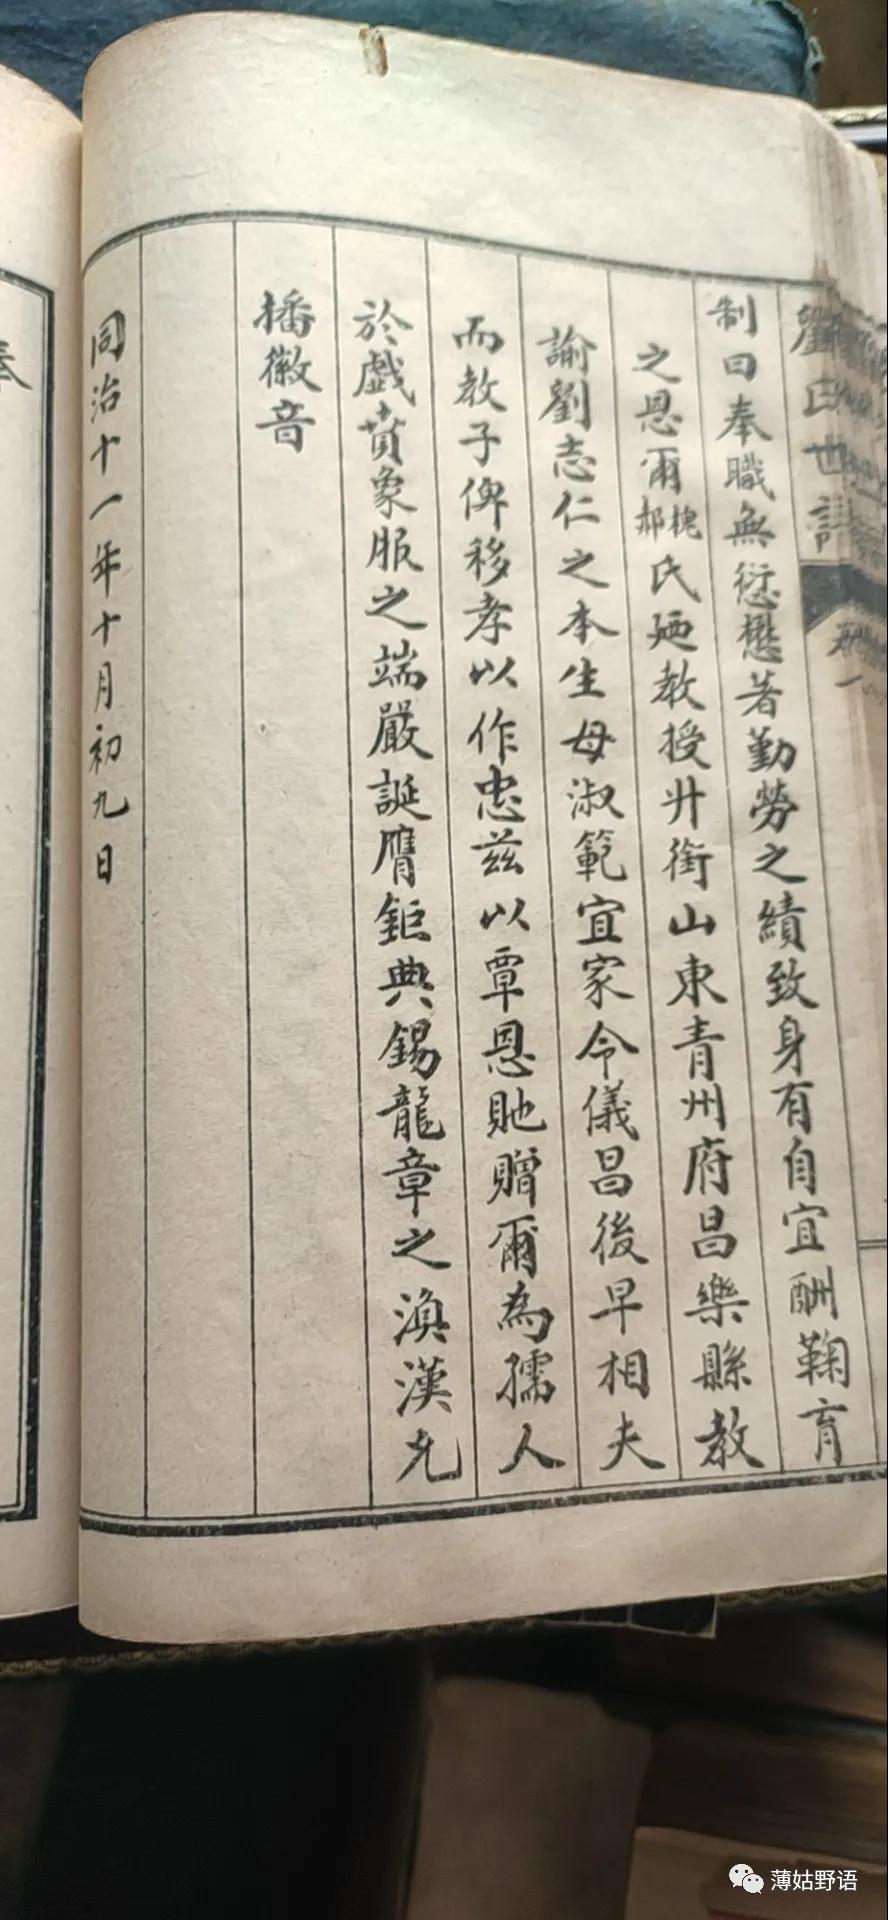 劉氏世譜
制曰奉職無愆懋著勤勞之績致身有自宜酬鞠育
之恩爾槐郝氏廼教授升銜山東青州府昌樂縣教
諭劉志仁之本生母淑範宜家令儀昌後早相夫
而教子俾移孝以作忠兹以覃恩貤贈爾為孺人
於戲賁象服之端嚴誕膺鉅典錫龍章之渙漢允
播徽音
同治十一年十月初九日
奉
薄姑野语